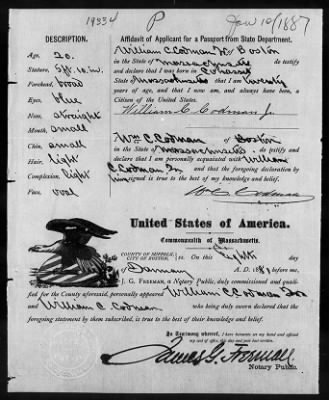 19334 P Jan 10/1887
DESCRIPTION.
Age, 20.
Stature, 5 ft. 10 in.
Forehead, broad
Eyes, blue
Nose, straight
Mouth, small
Chin, small
Hair, light
Complexion, light
Face, oval
Affidavit of Applicant for a Passport from State Department.
William C. Codman Jr of Boston
in the State of Massachusetts do testify
and declare that I was born in Cohasset
State Massachusetts that I am twenty
years of age, and that I now am, and always have been, a
Citizen of the United States.
William C. Codman Jr.
Wm C. Codman of Boston
in the State of Massachusetts do testify and
declare that I am personally acquainted with William
C. Codman Jr and that the foregoing declaration by
him signed is true to the best of my knowledge and belief.
Wm C. Codman
United States of America.
Commonwealth of Massachusetts.
COUNTY OF SUFFOLK,
CITY OF BOSTON, ss. On this Eighth day
of January A.D. 1887 before me,
J. G. FREEMAN, a Notary Public, duly commissioned and quali-
fied for the County aforesaid, personally appeared William C. Codman Jr
and William C. Codman who being duly sworn declared that the
foregoing statement by them subscribed, is true to the best of their knowledge and belief.
In Testimony whereof, I have hereunto set my hand and official
seal of office, this day and year last above written.
James G. Freeman
Notary Public.